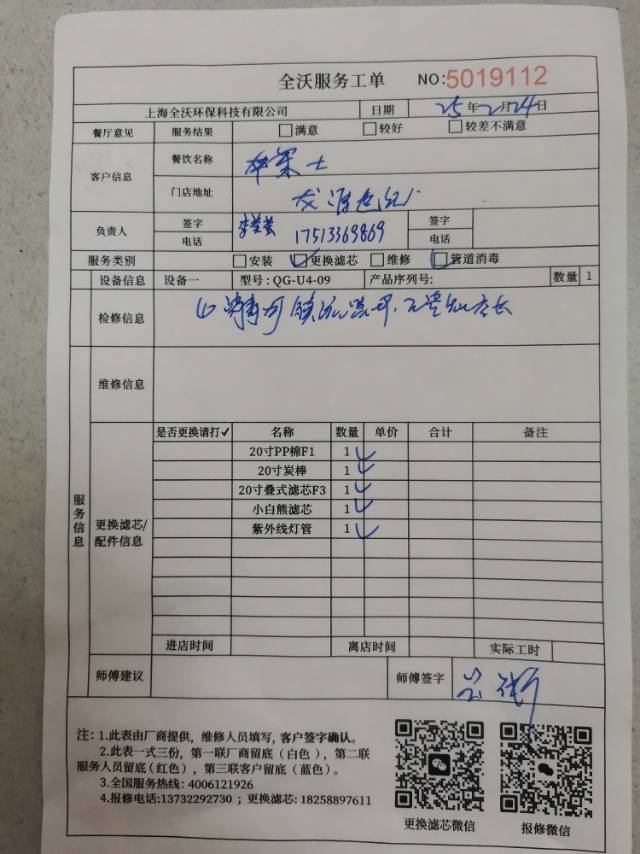 全沃服务工单 NO:5019112
上海全沃环保科技有限公司 日期 25年2月24日
餐厅意见 服务结果 满意 较好 较差不满意
客户信息 餐饮名称 华莱士
门店地址
负责人 签字 签字
电话 17513369869 电话
服务类别 安装 更换滤芯 维修 管道消毒
设备信息 设备一 型号：QG-U4-09 产品序列号： 数量 1
检修信息
维修信息
服务信息
更换滤芯/配件信息
是否更换请打✓ 名称 数量 单价 合计 备注
20寸PP棉F1 1 ✓
20寸炭棒 1 ✓
20寸叠式滤芯F3 1 ✓
小白熊滤芯 1 ✓
紫外线灯管 1 ✓
进店时间 离店时间 实际工时
师傅建议 师傅签字
注：1.此表由厂商提供，维修人员填写，客户签字确认。
2.此表一式三份，第一联厂商留底（白色），第二联
服务人员留底（红色），第三联客户留底（蓝色）。
3.全国服务热线: 4006121926
4.报修电话:13732292730 ；更换滤芯: 18258897611
更换滤芯微信 报修微信